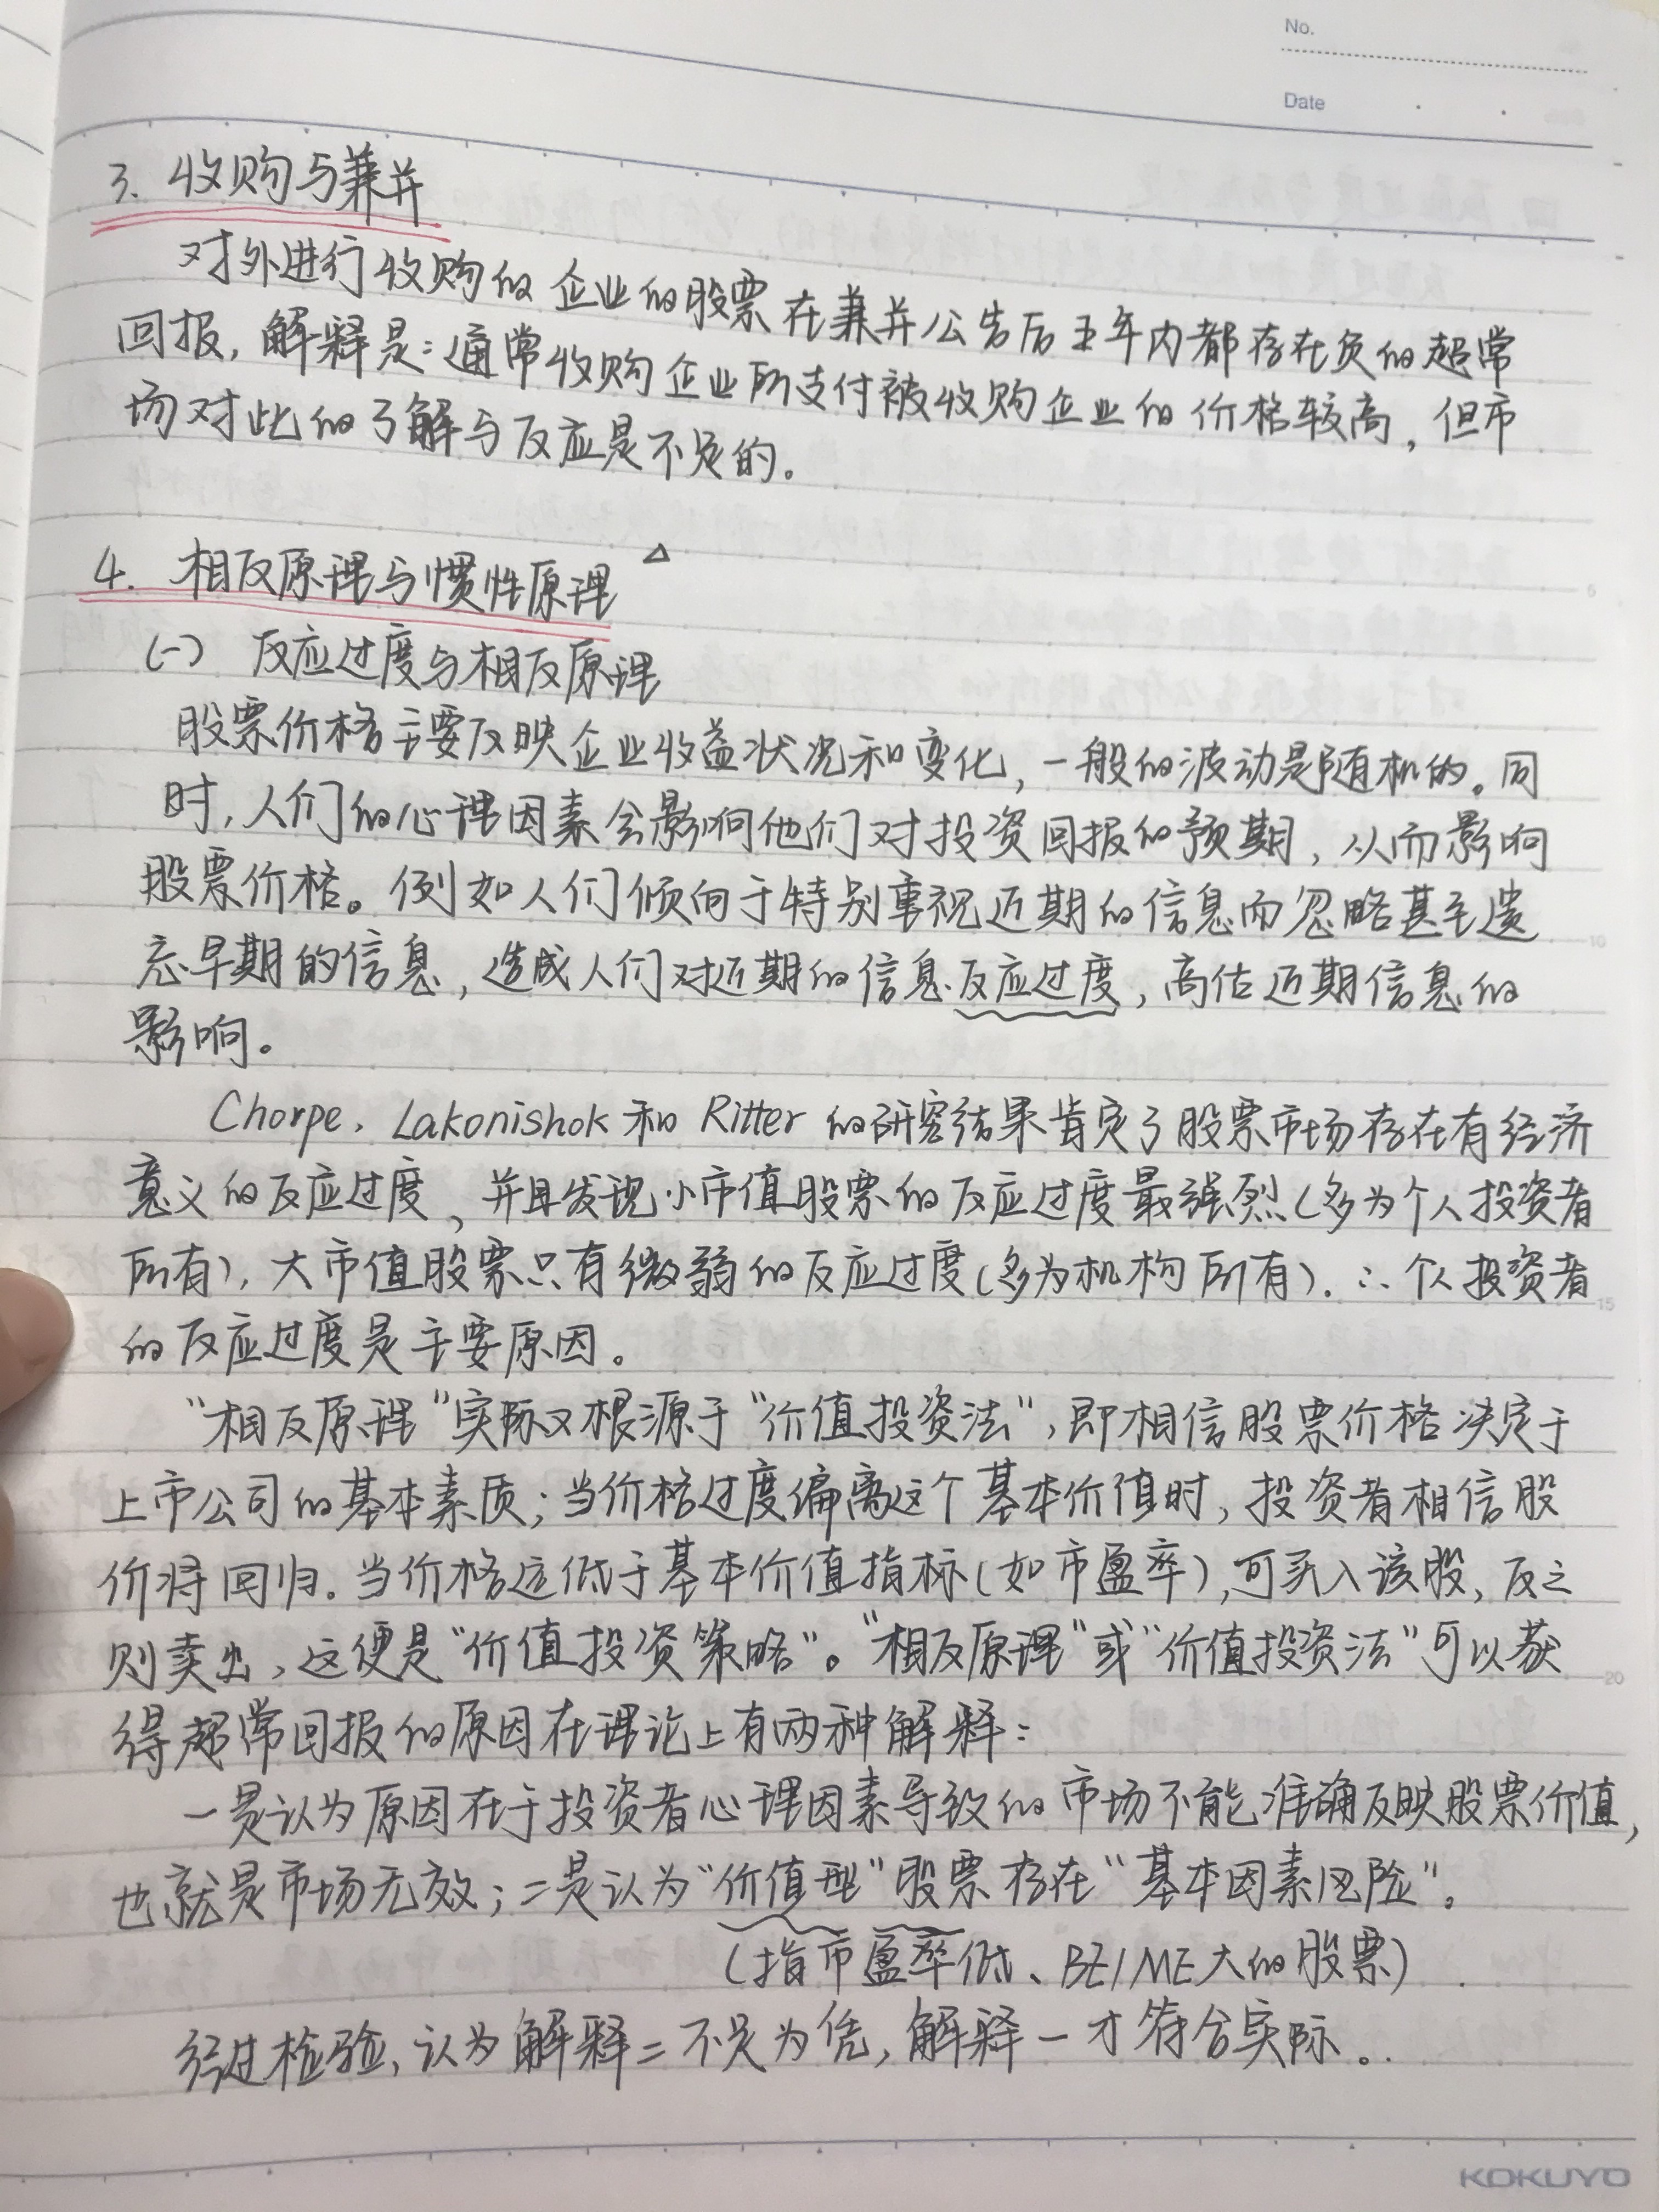 No.
Date
3. 收购与兼并
对外进行收购的企业的股票在兼并公告后五年内都存在负的超常
回报,解释是:通常收购企业所支付被收购企业的价格较高,但市
场对此的了解与反应是不足的。
4. 相反原理与惯性原理 △
(一) 反应过度与相反原理
股票价格主要反映企业收益状况和变化,一般的波动是随机的。同
时,人们的心理因素会影响他们对投资回报的预期,从而影响
股票价格。例如人们倾向于特别重视近期的信息而忽略甚至遗
忘早期的信息,造成人们对近期的信息反应过度,高估近期信息的
影响。
Chorpe, Lakonishok 和 Ritter 的研究结果肯定了股票市场存在有经济
意义的反应过度,并且发现小市值股票的反应过度最强烈(多为个人投资者
所有),大市值股票只有微弱的反应过度(多为机构所有).∴个人投资者
的反应过度是主要原因。
“相反原理”实际又根源于“价值投资法”,即相信股票价格决定于
上市公司的基本素质;当价格过度偏离这个基本价值时,投资者相信股
价将回归.当价格远低于基本价值指标(如市盈率),可买入该股,反之
则卖出,这便是“价值投资策略”。“相反原理”或“价值投资法”可以获
得超常回报的原因在理论上有两种解释:
一是认为原因在于投资者心理因素导致的市场不能准确反映股票价值,
也就是市场无效;二是认为“价值型”股票存在“基本因素风险”。
(指市盈率低、BE/ME大的股票)
经过检验,认为解释二不足为凭,解释一才符合实际。
KOKUYO